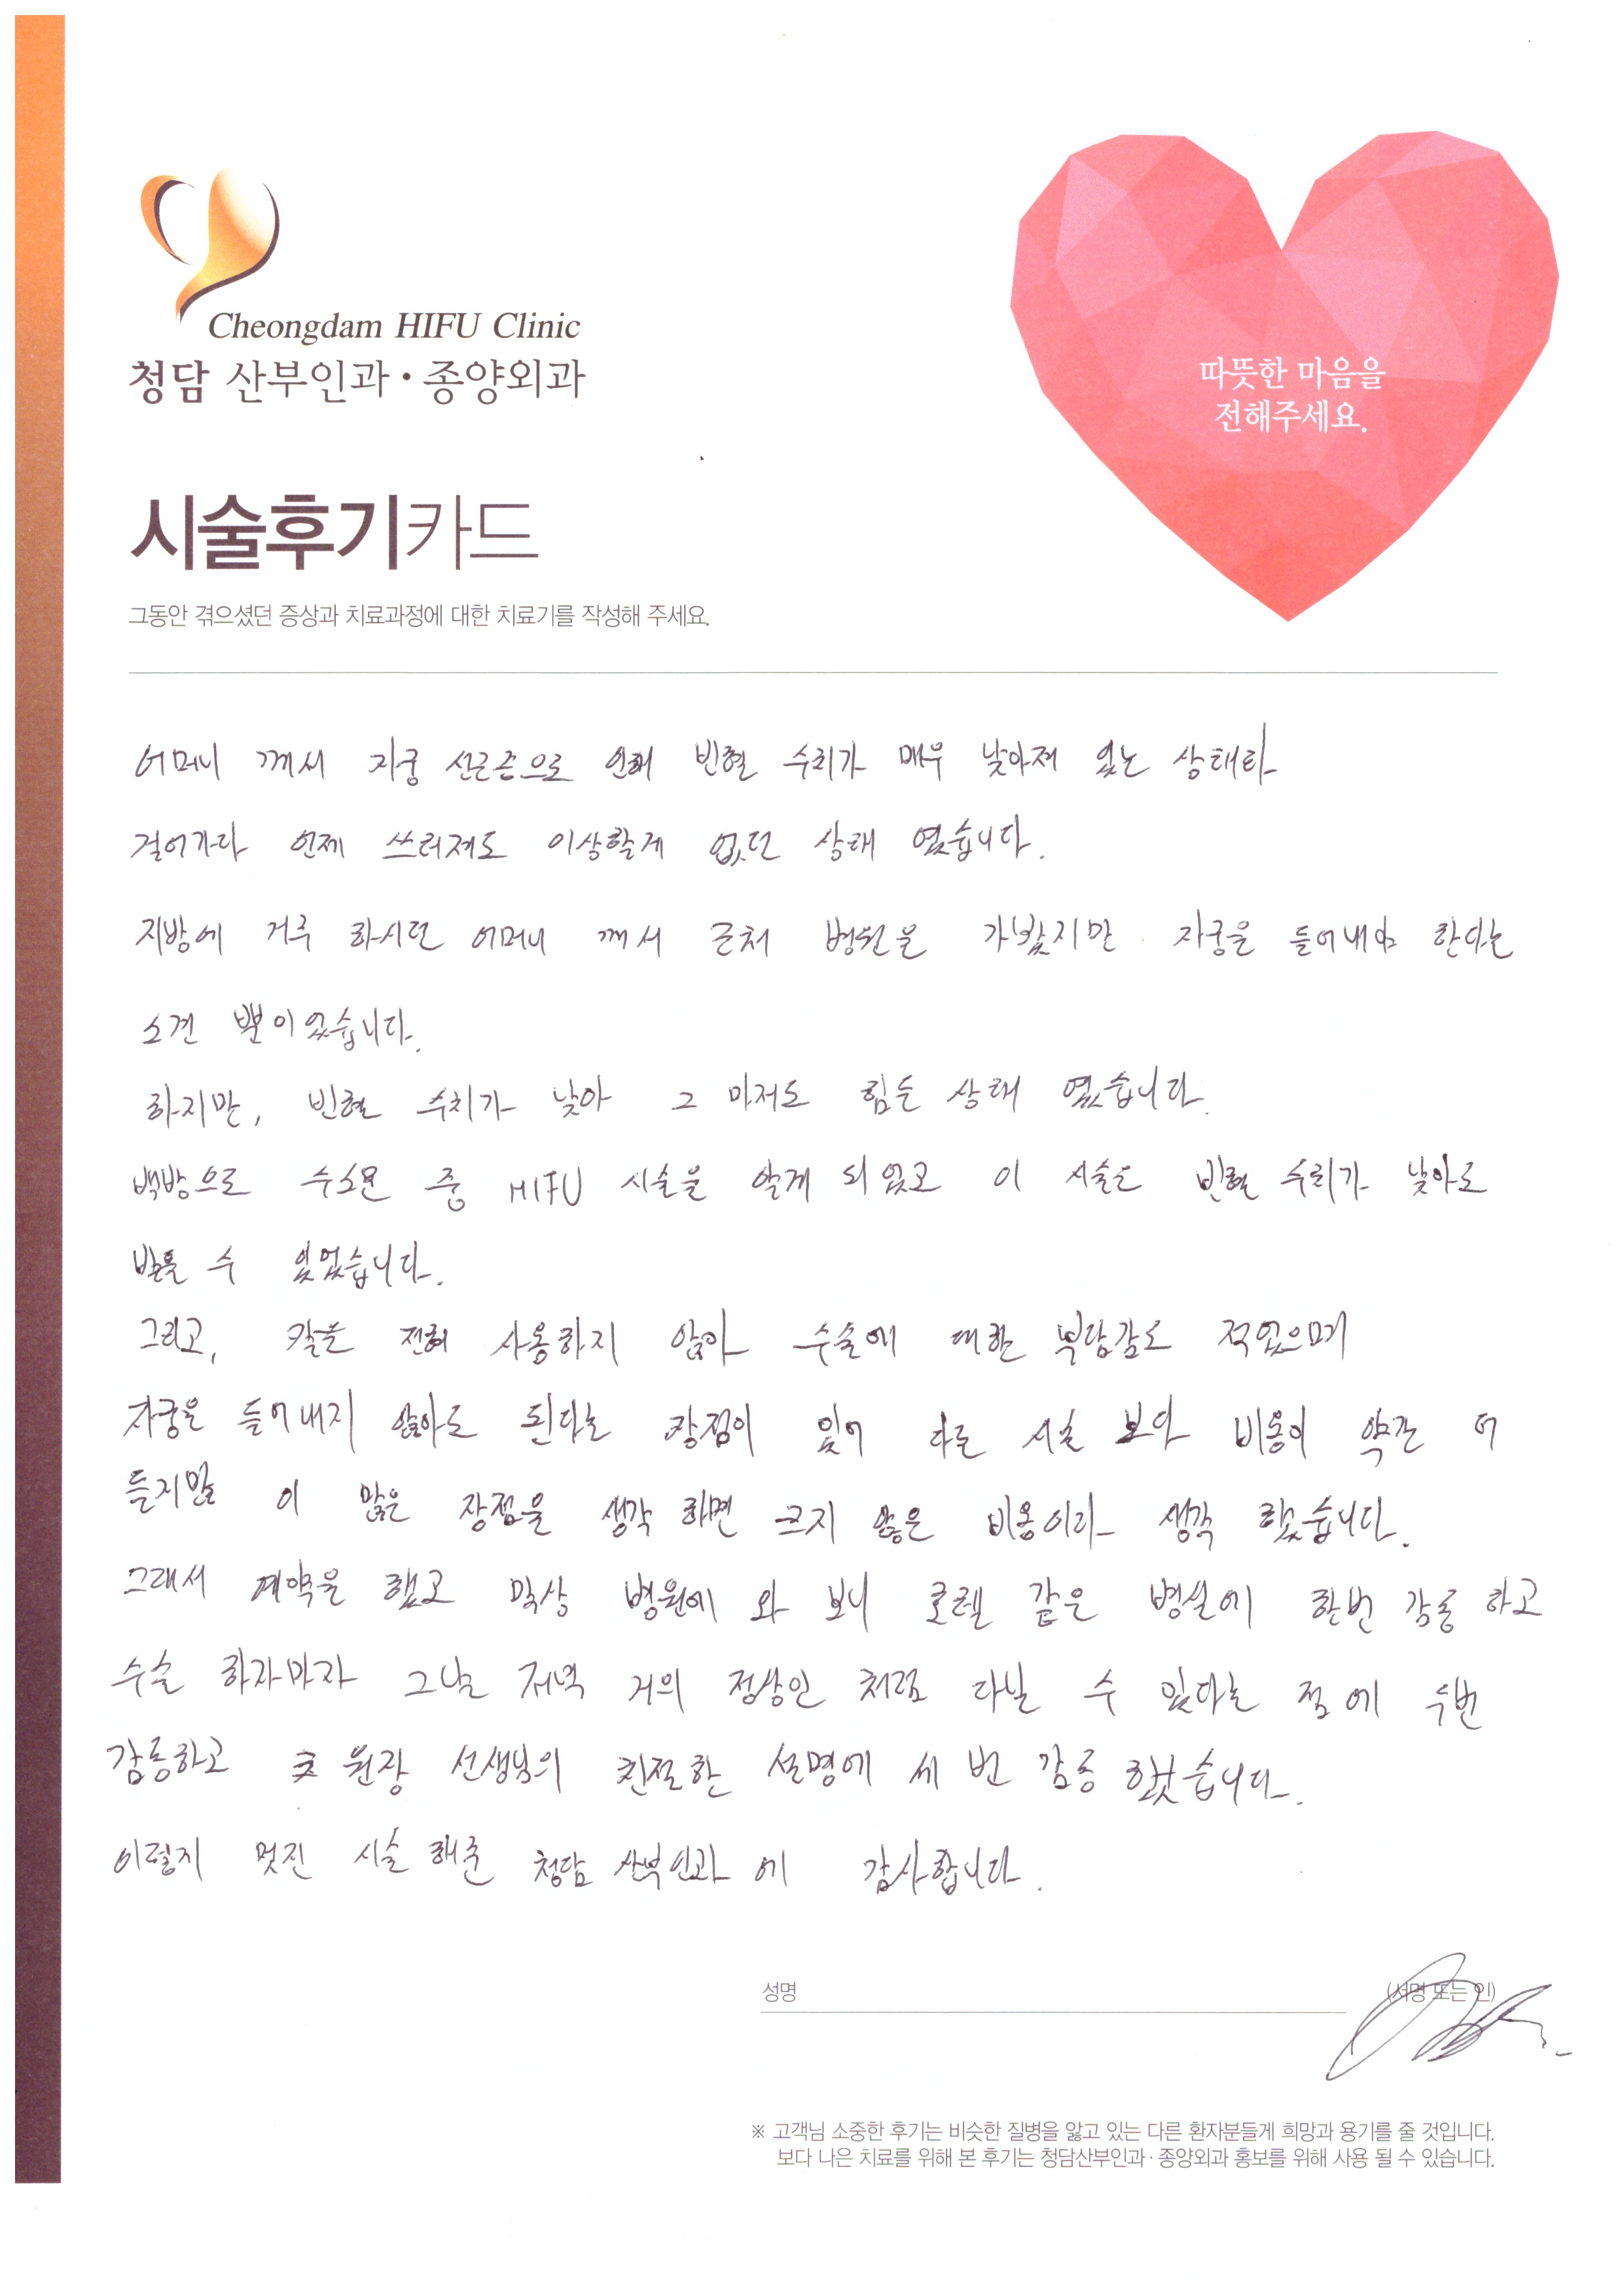 Cheongdam HIFU Clinic
청담 산부인과·종양외과
따뜻한 마음을
전해주세요.
시술후기카드
그동안 겪으셨던 증상과 치료과정에 대한 치료기를 작성해 주세요.
어머니 께서 자궁 선근증으로 인해 빈혈 수치가 매우 낮아져 있는 상태라
걸어가다 언제 쓰러져도 이상할게 없던 상태 였습니다.
지방에 거주 하시던 어머니 께서 근처 병원을 가봤지만 자궁을 들어내야 한다는
소견 뿐이었습니다.
하지만, 빈혈 수치가 낮아 그 마저도 힘든 상태 였습니다.
백방으로 수소문 중 HIFU 시술을 알게 되었고 이 시술은 빈혈 수치가 낮아도
받을 수 있었습니다.
그리고, 칼을 전혀 사용하지 않아 수술에 대한 부담감도 적었으며
자궁을 들어내지 않아도 된다는 장점이 있어 다른 시술 보다 비용이 약간 더
들지만 이 많은 장점을 생각 하면 크지 않은 비용이라 생각 했습니다.
그래서 예약을 했고 막상 병원에 와 보니 호텔 같은 병실에 한번 감동 하고
수술 하자마자 그날 저녁 거의 정상인 처럼 다닐 수 있다는 점 에 두번
감동하고 원장 선생님의 친절한 설명에 세 번 감동 했습니다.
이렇게 멋진 시술 해준 청담 산부인과 에 감사합니다.
성명 (서명 또는 인)
※ 고객님 소중한 후기는 비슷한 질병을 앓고 있는 다른 환자분들게 희망과 용기를 줄 것입니다.
보다 나은 치료를 위해 본 후기는 청담산부인과·종양외과 홍보를 위해 사용 될 수 있습니다.